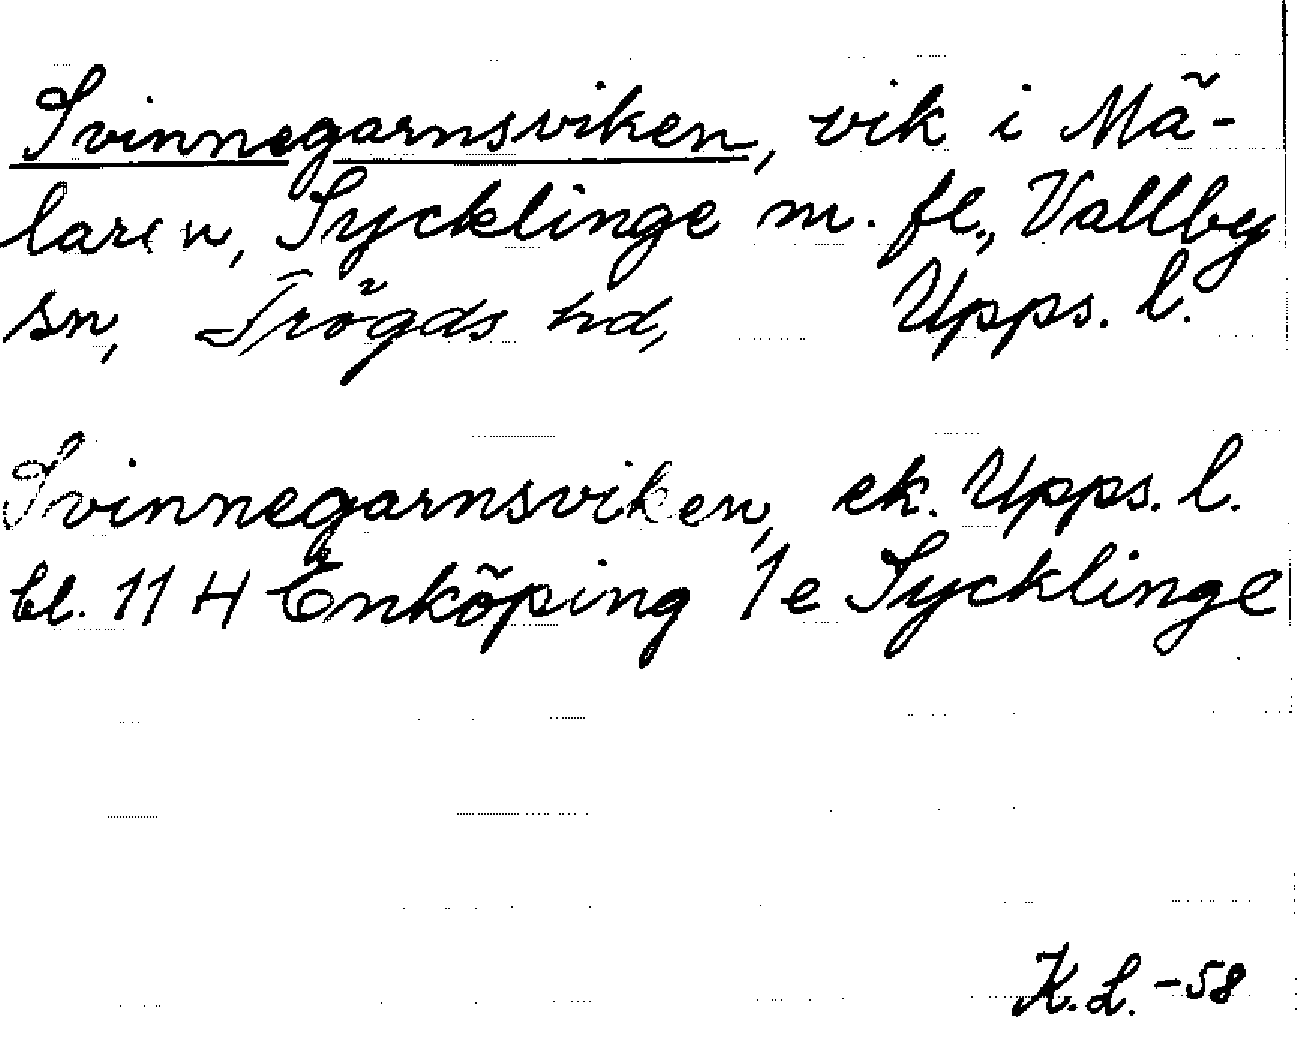 Svinnegarnsviken, vik i Mä-
laren, Sycklinge m. fl., Vallby
sn, Trögds hd, Upps. l.
Svinnegarnsviken, ek. Upps. l.
bl. 114 Enköping 1e Sycklinge
K.L. -58